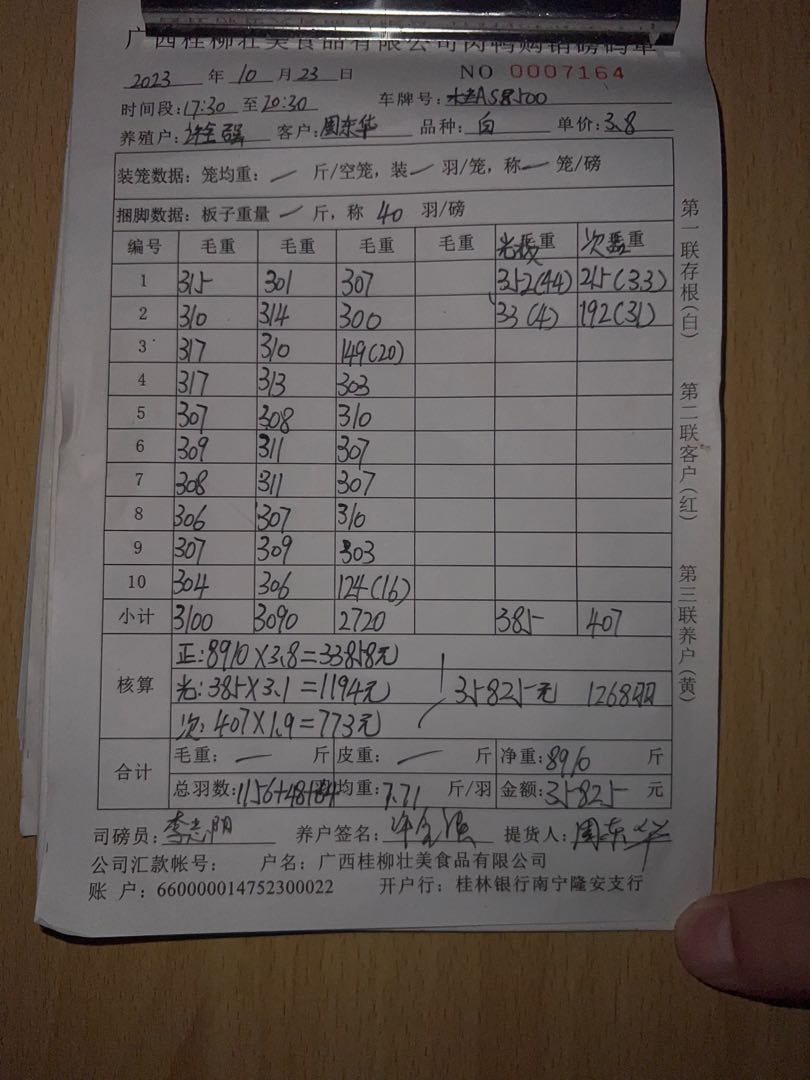 广西桂柳壮美食品有限公司肉鸭购销磅码单
2023 年 10 月 23 日 NO 0007164
时间段:17:30 至 20:30 车牌号: AS8500
养殖户: 客户:周东华 品种:白 单价:3.8
装笼数据:笼均重: — 斤/空笼,装 — 羽/笼,称 — 笼/磅
捆脚数据:板子重量 — 斤,称 40 羽/磅
编号 毛重 毛重 毛重 毛重 光 重 次 重
1 315 301 307 352(44) 215(33)
2 310 314 300 33(4) 192(31)
3 317 310 149(20)
4 317 313 303
5 307 308 310
6 309 311 307
7 308 311 307
8 306 307 310
9 307 309 303
10 304 306 124(16)
小计 3100 3090 2720 385 407
核算 正:8910×3.8=33858元
光:385×3.1=1194元 35825元 1268羽
次:407×1.9=773元
合计 毛重: — 斤 皮重: — 斤 净重:8910 斤
总羽数:1156+48+64 均重:7.71 斤/羽 金额:35825 元
司磅员:李志阳 养户签名: 提货人:周东华
公司汇款帐号: 户名:广西桂柳壮美食品有限公司
账 户:660000014752300022 开户行:桂林银行南宁隆安支行
第一联存根(白)
第二联客户(红)
第三联养户(黄)